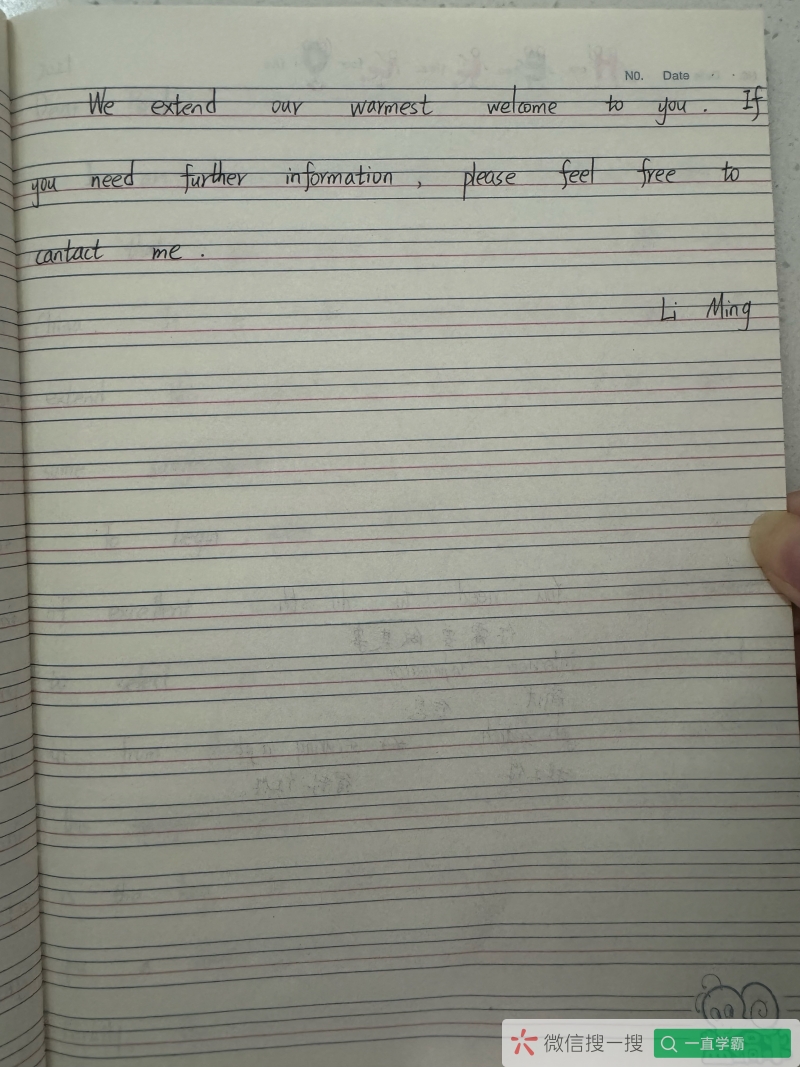 N0. Date
We extend our warmest welcome to you. If
you need further information, please feel free to
cantact me.
Li Ming
微信搜一搜
一直学霸